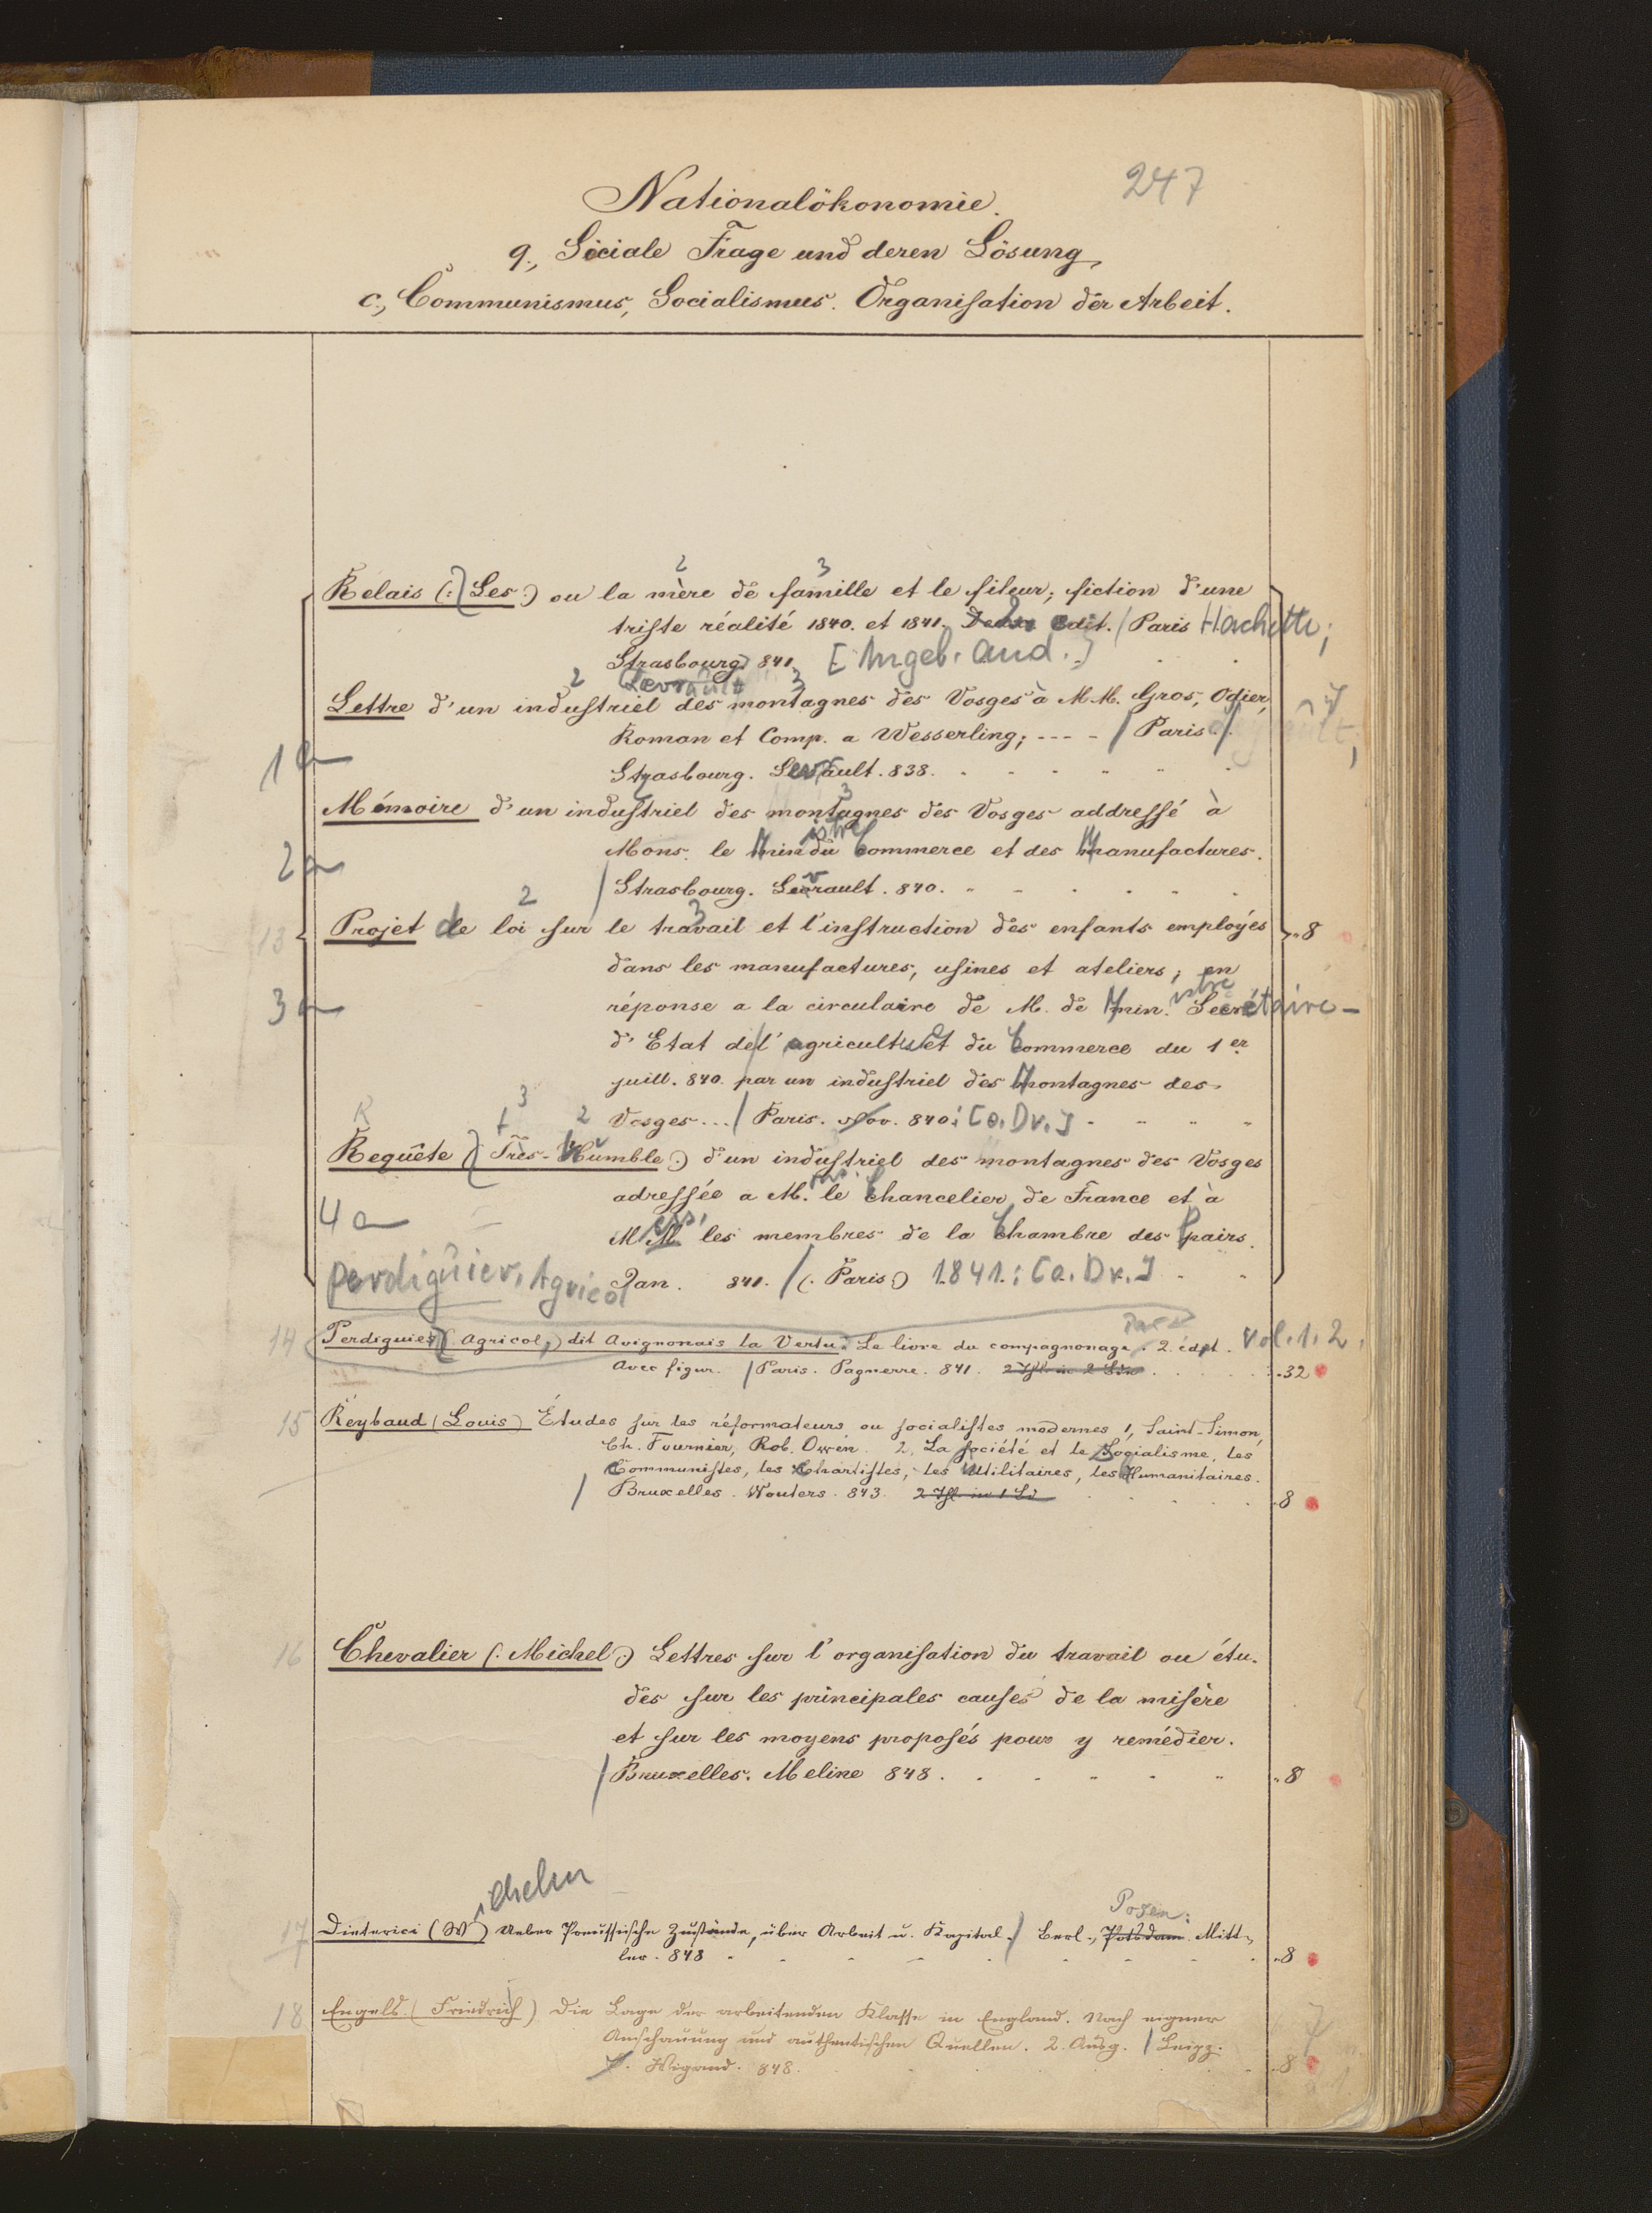 247
Nationalökonomie.
9., Sociale Frage und deren Lösung,
c., Communismus, Socialismus. Organisation der Arbeit.
2 3
Relais (: Les :) ou la mère de famille et le fileur; fiction d'une
triste réalité 1840. et 1841. edit. / Paris Hachette;
Strasbourg 841. [Angeb. and.]
2 Levrault 3
Lettre d'un industriel des montagnes des Vosges à M.M. Gros, Odier,
Roman et Comp. a Wesserling; - - - - / Paris
1a
Strasbourg. Levrault. 838.
3
Mémoire d'un industriel des montagnes des Vosges addressé à
Mons. le Ministre du Commerce et des Manufactures.
2a
/ Strasbourg. Levrault. 840.
2 3
13 Projet de loi sur le travail et l'instruction des enfants employés „8
dans les manufactures, usines et ateliers; en
3a
réponse a la circulaire de M. de Ministre Secrétaire-
d'Etat de l'agricult et du Commerce du 1er
juill. 840. par un industriel des Montagnes des
R 3 2
Vosges... / Paris. Nov. 840. [a. Dr.]
Requête (Très-Humble:) d'un industriel des montagnes des Vosges
adressée a M. le Chancelier de France et à
4a
M M les membres de la Chambre des Pairs.
Perdiguier, Agricol
Jan. 841. / (: Paris :) 1841. [a. Dr.]
14 Perdiguier (Agricol,) dit Avignonais la Vertu. Le livre du compagnonage. 2. édit. Vol. 1. 2.
Avec figur. / Paris. Pagnerre. 841. 2 Thl. in 2 Bdn „32
15 Reybaud (Louis) Études sur les réformateurs ou socialistes modernes 1, Saint-Simon,
Ch. Fournier, Rob. Owen. 2, La société et le Socialisme, les
Communistes, les Chartistes, les Utilitaires, les Humanitaires.
/ Bruxelles. Wouters. 843. 2 Thl. in 1 Bd „8
16 Chevalier (: Michel :) Lettres sur l'organisation du travail ou étu-
des sur les principales causes de la misère
et sur les moyens proposés pour y remédier.
/ Bruxelles. Meline 848. „8
ilhelm
Posen:
17 Dieterici (W) Ueber Preußische Zustände, über Arbeit u. Kapital. / Berl., Potsdam. Mitt-
ler. 848 „8
18 Engels (Friedrich) Die Lage der arbeitenden Klasse in England. Nach eigner
Anschauung und authentischen Quellen. 2. Ausg. / Leipz.
O. Wigand. 848. „8